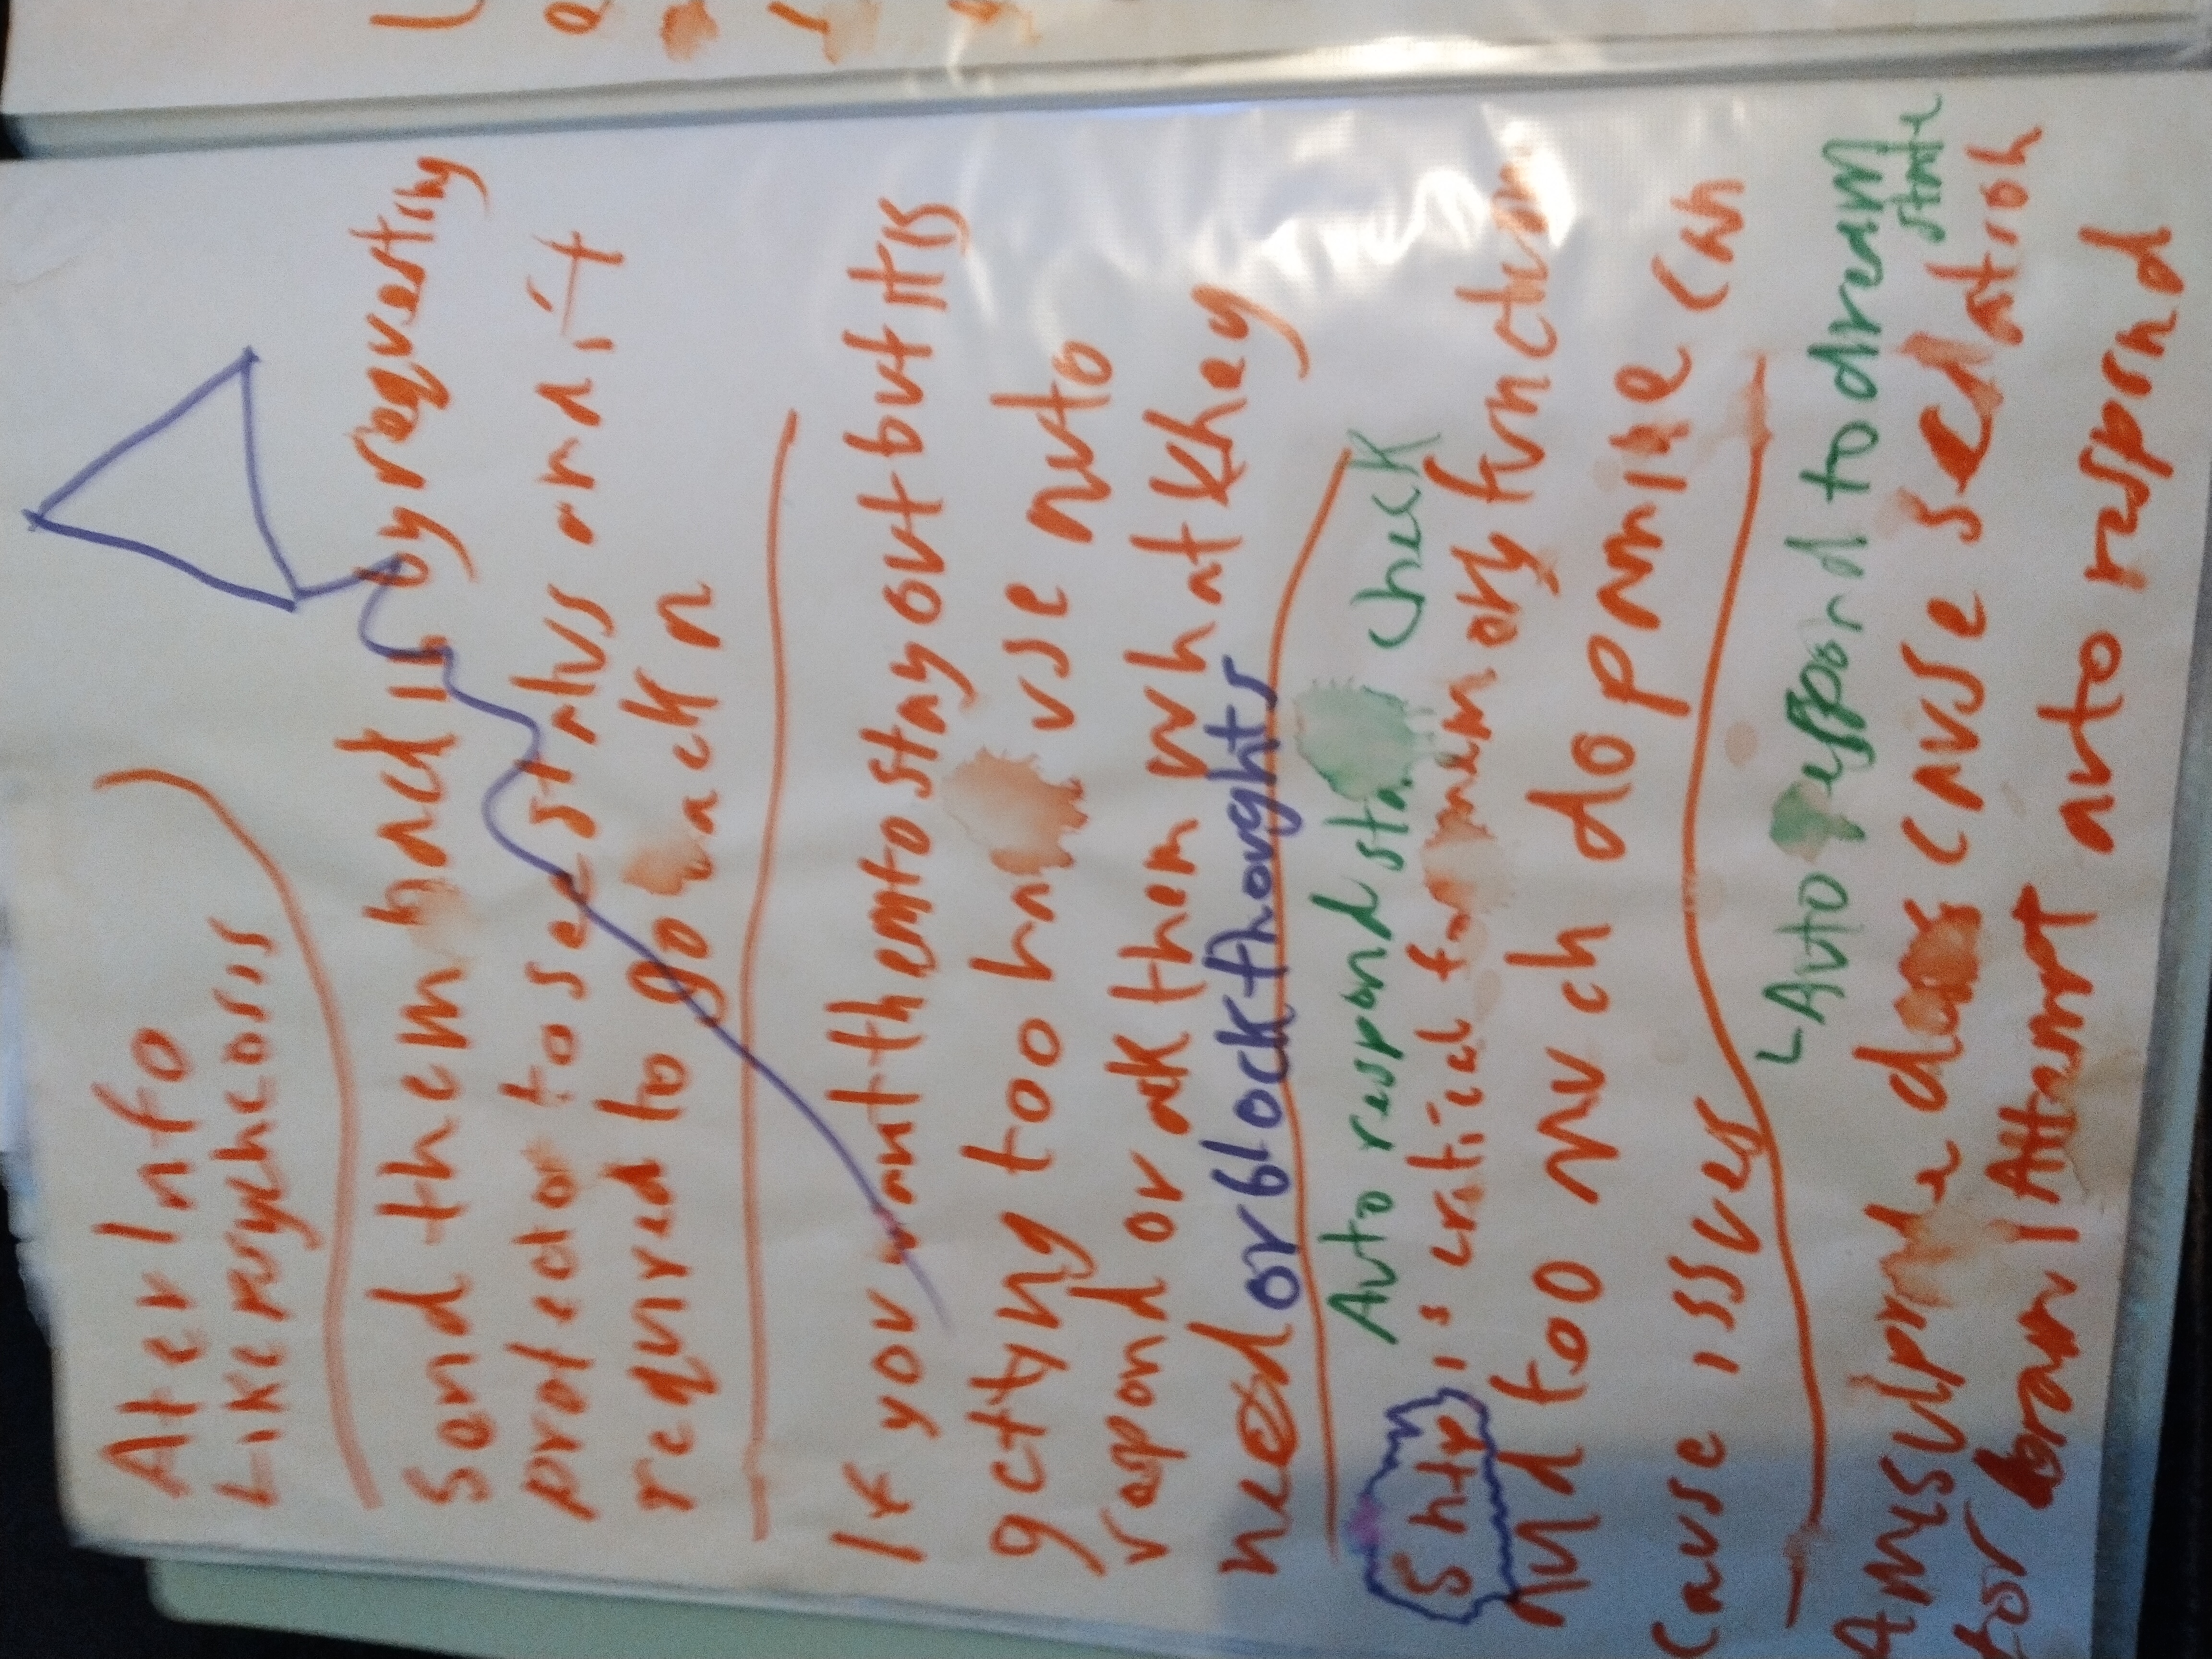 Alter Info
Like psychcosis
Send them back is by requesting
protector to see status and if
required to go back n
If you want them to stay out but its
getting too hi use auto
respond or ask them what they
need or block thoughts
Auto respond sta check
5 htp is critical for memory function
and too much dopamine can
cause issues
Auto respond to dream
state
Amsulpride does cause sedation
for brain 1 Attempt auto respond